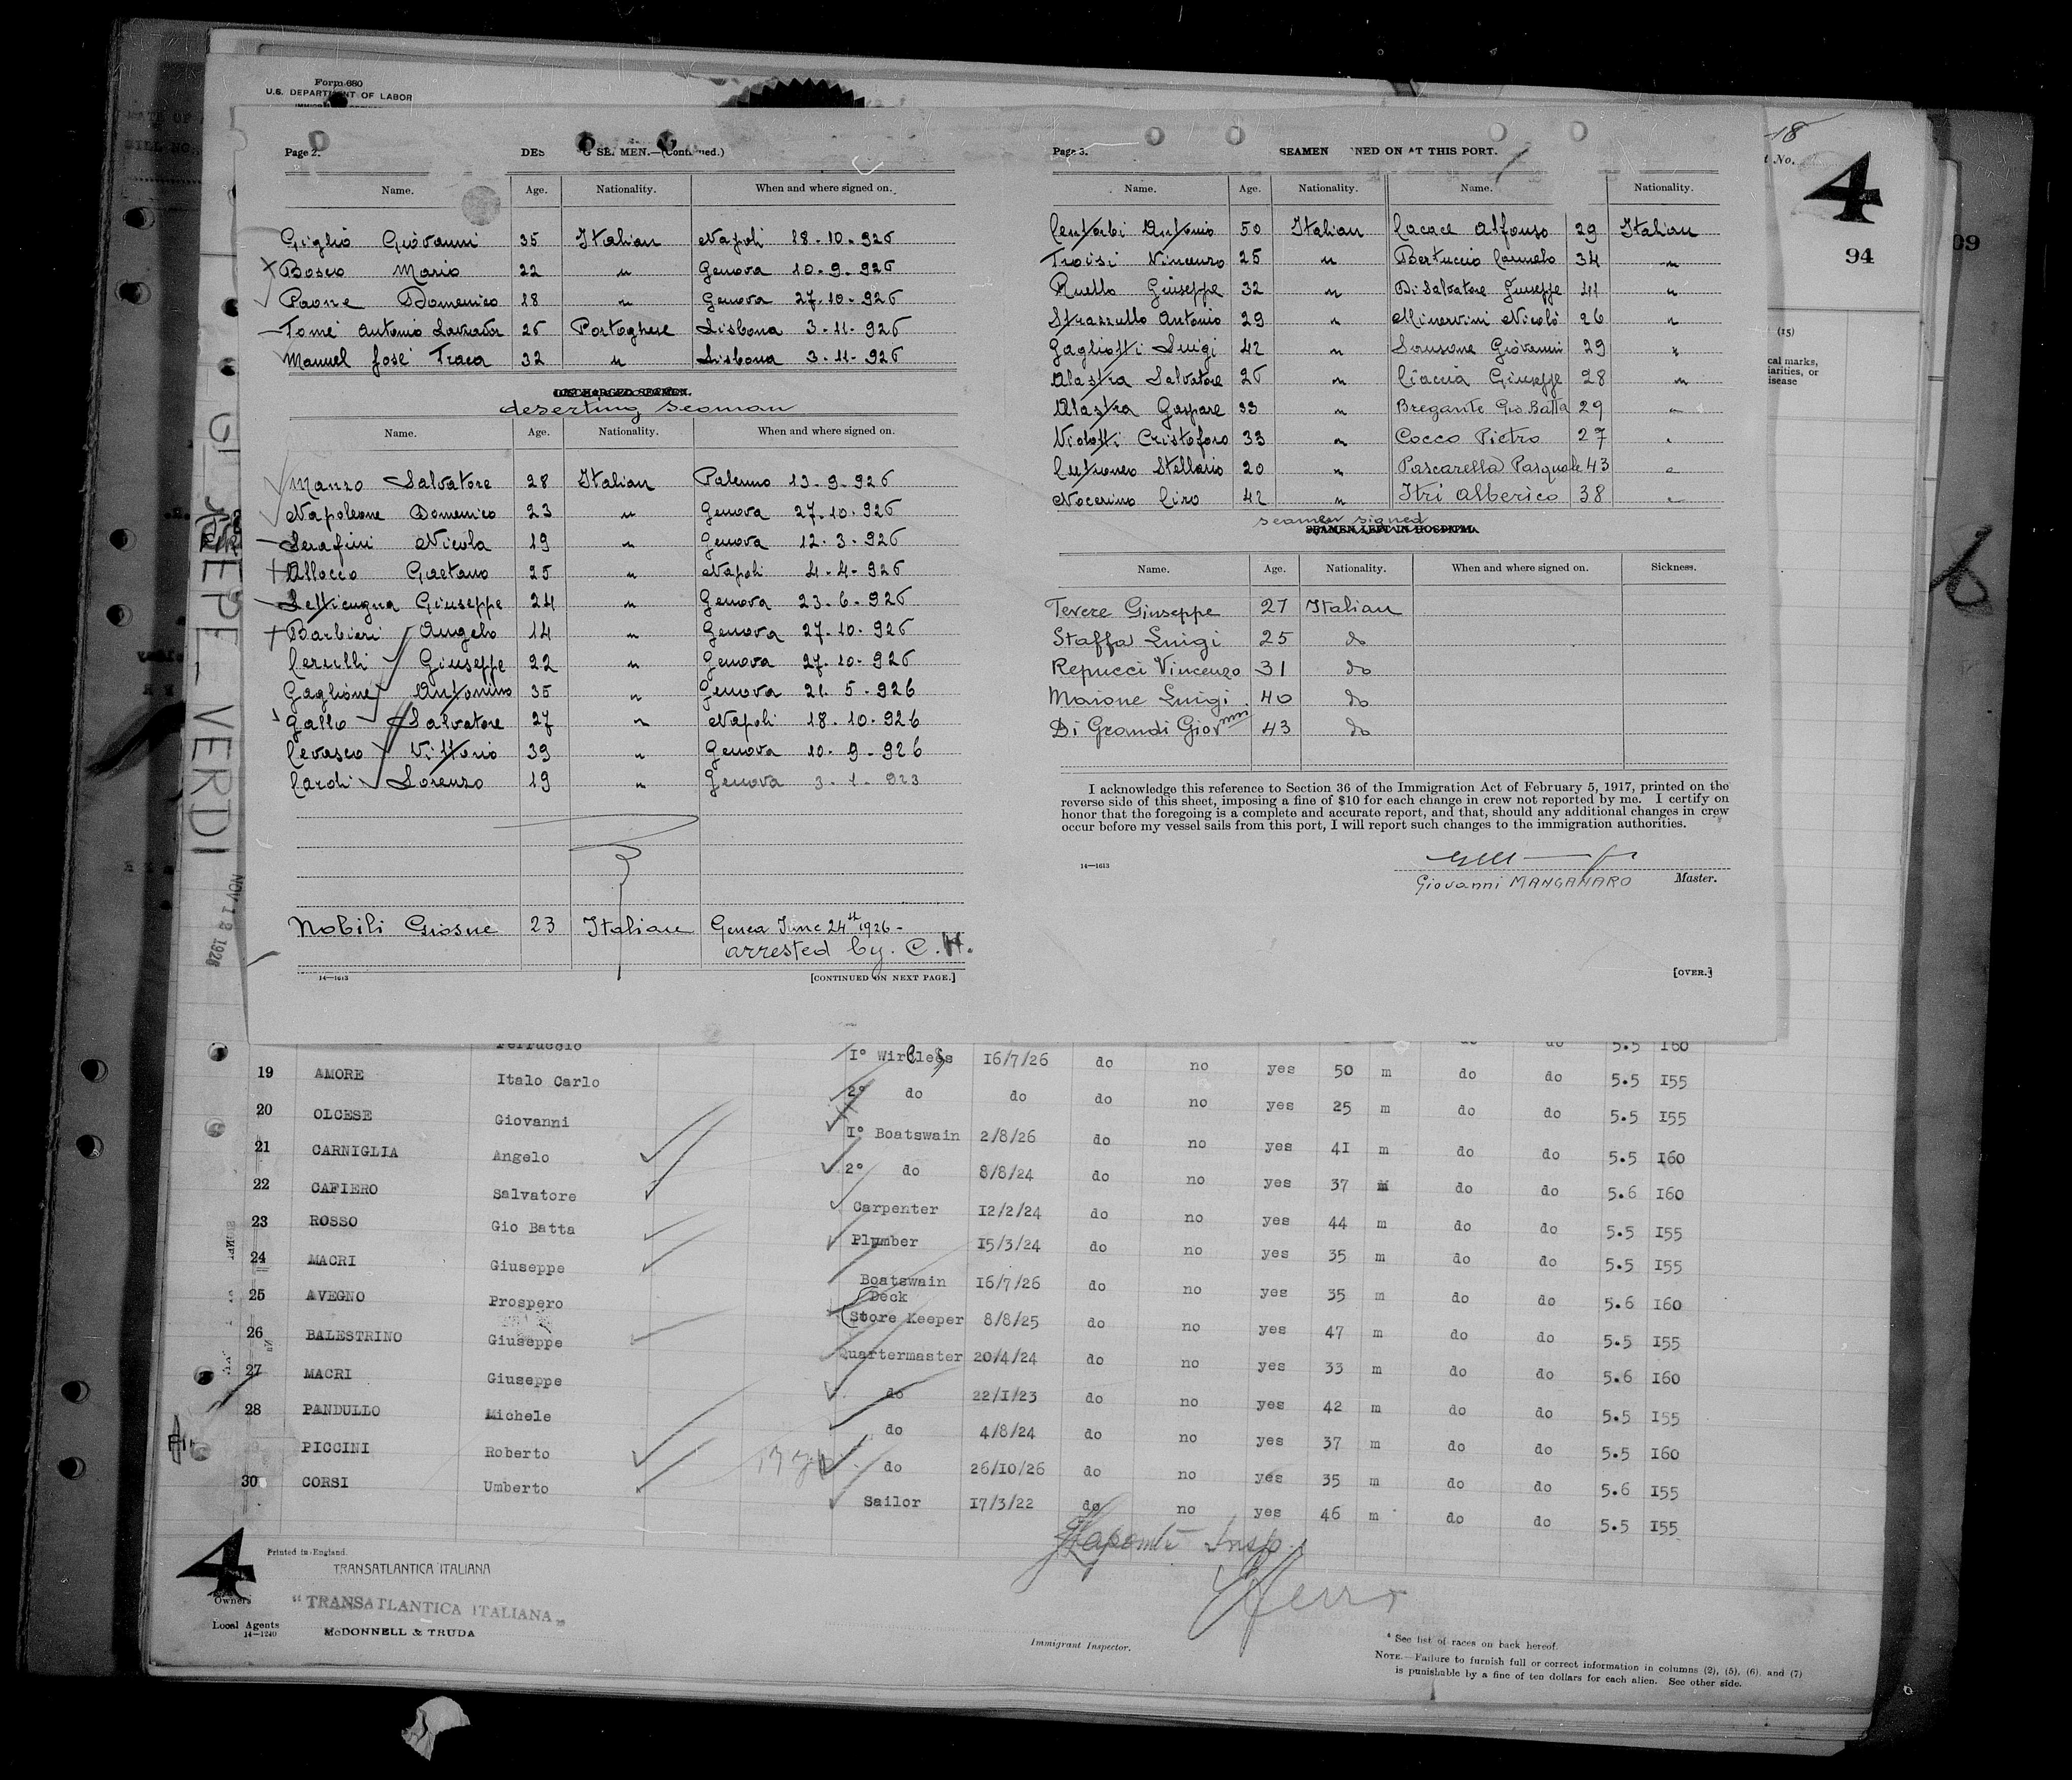 Form 680
U.S. DEPARTMENT OF LABOR
18
t No.
4
94
09
(15)
cal marks,
iarities, or
isease
GIUSEPPE VERDI
NOV 12 1926
Page 2. DES G SE MEN.—(Continued.)
Name. Age. Nationality. When and where signed on.
Giglio Giovanni 35 Italian Napoli 18-10-926
Bosco Mario 22 " Genova 10-9-926
Paone Domenico 18 " Genova 27-10-926
Tomé Antonio 26 Portoghese Lisbona 3-11-926
Manuel José Traca 32 " Lisbona 3-11-926
DISCHARGED SEAMEN.
deserting seaman
Name. Age. Nationality. When and where signed on.
Manzo Salvatore 28 Italian Palermo 13-9-926
Napoleone Domenico 23 " Genova 27-10-926
Serafini Nicola 19 " Genova 12-3-926
Allocco Gaetano 25 " Napoli 4-4-926
Letticugna Giuseppe 24 " Genova 23-6-926
Barbieri Angelo 14 " Genova 27-10-926
Cerulli Giuseppe 22 " Genova 27-10-926
Gaglione Antonino 35 " Genova 21-5-926
Gallo Salvatore 27 " Napoli 18-10-926
Cevasco Vittorio 39 " Genova 10-9-926
Cardi Lorenzo 19 " Genova 3-1-923
Nobili Giosue 23 Italian Genoa June 24th 1926-
arrested by C.H.
14—1613 [CONTINUED ON NEXT PAGE.]
Page 3. SEAMEN NED ON AT THIS PORT.
Name. Age. Nationality. Name. Nationality.
Centorbi Antonio 50 Italian Cacace Alfonso 29 Italian
Troisi Vincenzo 25 " Bertuccio Carmelo 34 "
Ruello Giuseppe 32 " Di Salvatore Giuseppe 41 "
Strazzullo Antonio 29 " Minervini Nicolò 26 "
Gagliotti Luigi 42 " Sansone Giovanni 29 "
Alastra Salvatore 26 " Ciaccia Giuseppe 28 "
Alastra Gaspare 33 " Bregante Gio Batta 29 "
Violotti Cristoforo 33 " Cocco Pietro 27 "
Cutroneo Stellario 20 " Pascarella Pasquale 43 "
Nocerino Ciro 42 " Itri Alberico 38 "
seamen signed
SEAMEN LEFT IN HOSPITAL.
Name. Age. Nationality. When and where signed on. Sickness.
Tevere Giuseppe 27 Italian
Staffa Luigi 25 do
Repucci Vincenzo 31 do
Maione Luigi 40 do
Di Grandi Giovnni 43 do
I acknowledge this reference to Section 36 of the Immigration Act of February 5, 1917, printed on the
reverse side of this sheet, imposing a fine of $10 for each change in crew not reported by me. I certify on
honor that the foregoing is a complete and accurate report, and that, should any additional changes in crew
occur before my vessel sails from this port, I will report such changes to the immigration authorities.
14—1613
Giovanni MANGANARO Master.
[OVER.]
Ferruccio I° Wireless 16/7/26 do no yes 50 m do do 5.5 160
19 AMORE Italo Carlo 2° do do do no yes 25 m do do 5.5 155
20 OLCESE Giovanni I° Boatswain 2/8/26 do no yes 41 m do do 5.5 155
21 CARNIGLIA Angelo 2° do 8/8/24 do no yes 37 m do do 5.5 160
22 CAFIERO Salvatore Carpenter 12/2/24 do no yes 44 m do do 5.6 160
23 ROSSO Gio Batta Plumber 15/3/24 do no yes 35 m do do 5.5 155
24 MACRI Giuseppe Boatswain 16/7/26 do no yes 35 m do do 5.5 155
25 AVEGNO Prospero Deck Store Keeper 8/8/25 do no yes 47 m do do 5.6 160
26 BALESTRINO Giuseppe Quartermaster 20/4/24 do no yes 33 m do do 5.5 155
27 MACRI Giuseppe do 22/1/23 do no yes 42 m do do 5.6 160
28 PANDULLO Michele do 4/8/24 do no yes 37 m do do 5.5 155
PICCINI Roberto do 26/10/26 do no yes 35 m do do 5.5 160
30 CORSI Umberto Sailor 17/3/22 do no yes 46 m do do 5.6 155
5.5 155
4
Printed in England.
TRANSATLANTICA ITALIANA
Owners "TRANSATLANTICA ITALIANA"
Local Agents McDONNELL & TRUDA
14—1240
Insp.
Immigrant Inspector.
* See list of races on back hereof.
NOTE.—Failure to furnish full or correct information in columns (2), (5), (6), and (7)
is punishable by a fine of ten dollars for each alien. See other side.